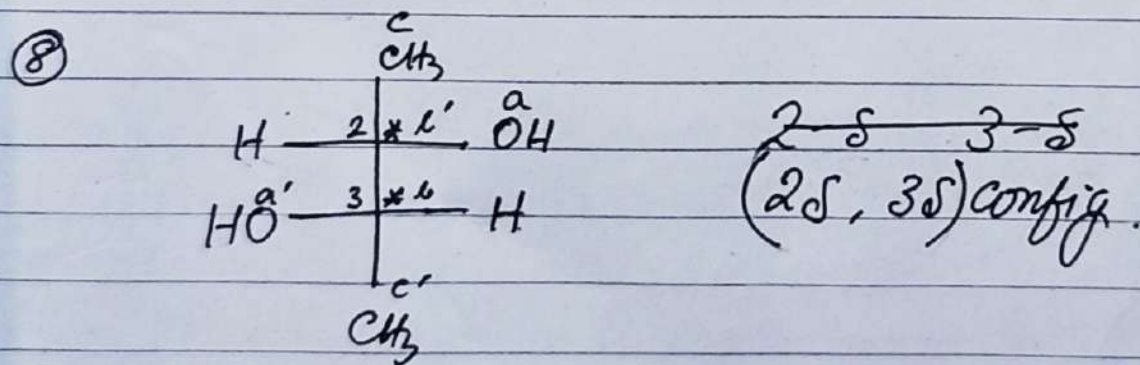 ⑧
c
CH₃
a
H 2 * b' OH
a'
HO 3 * b H
c'
CH₃
2-S 3-S
(2S, 3S) config.